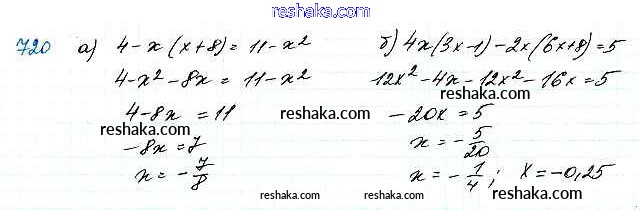 reshaka.com
720 а) 4-x(x+8)=11-x² б) 4x(3x-1)-2x(6x+8)=5
4-x²-8x=11-x² 12x²-4x-12x²-16x=5
reshaka.com
4-8x=11 -20x=5
reshaka.com
-8x=7 x=-5/20
reshaka.com
x=-7/8 x=-1/4; x=-0,25
reshaka.com reshaka.com